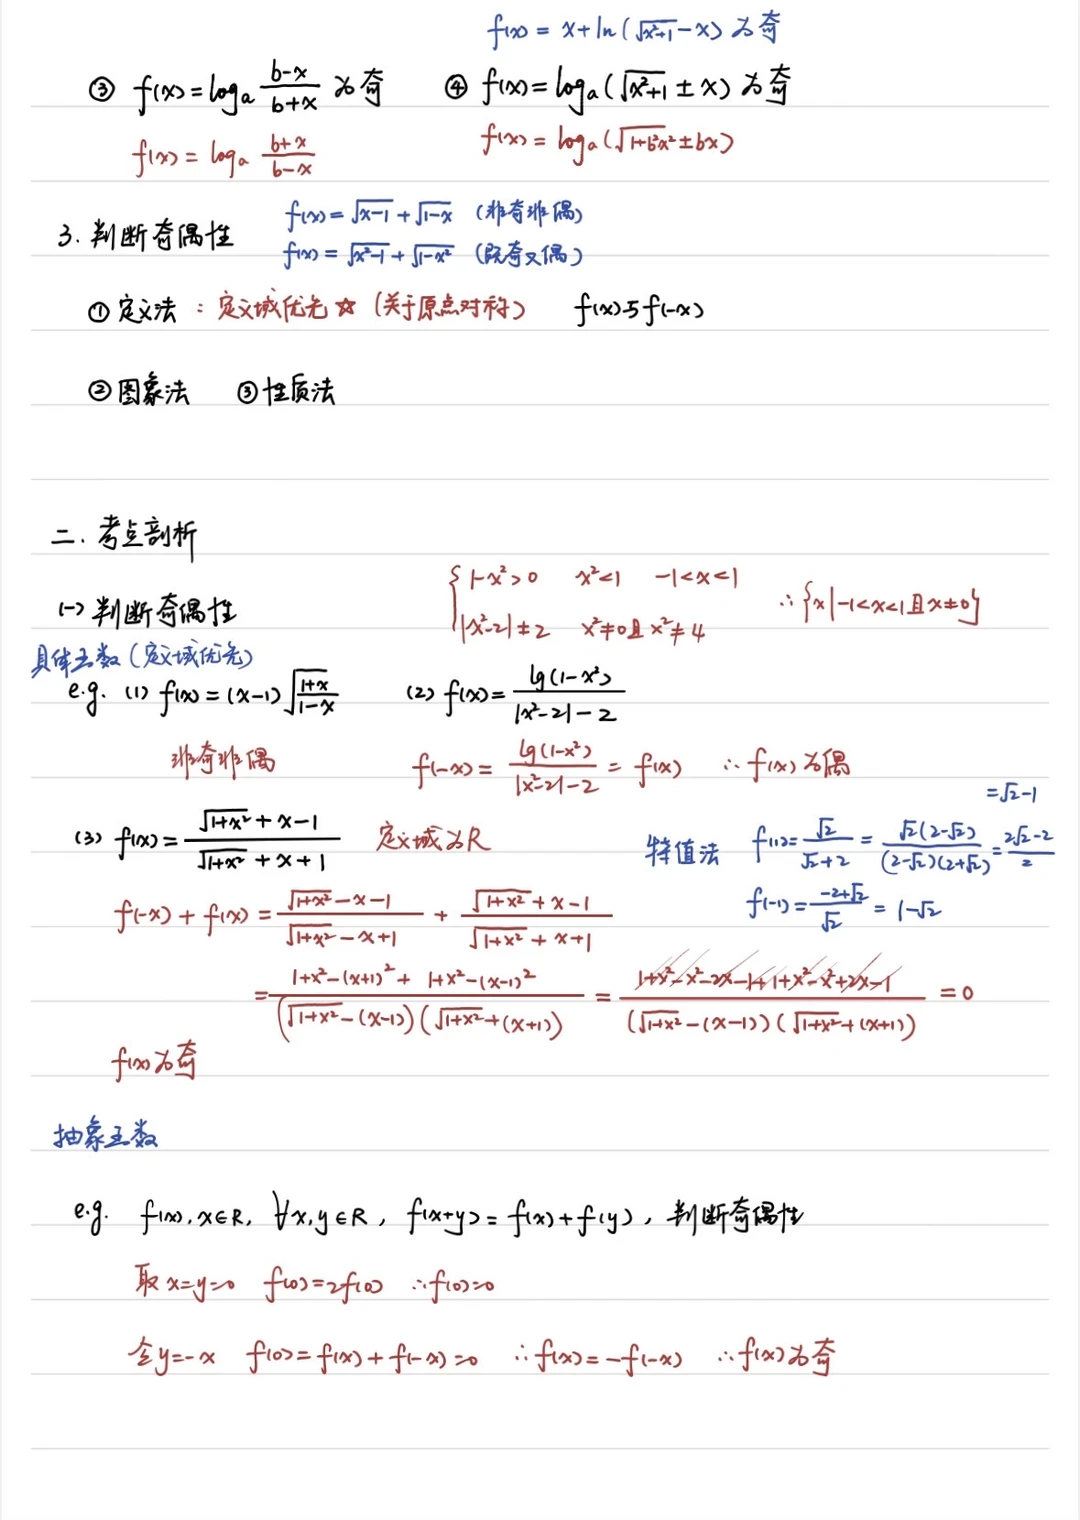 f(x) = x+ln(√(x²+1)-x) 为奇
③ f(x)=logₐ (b-x)/(b+x) 为奇 ④ f(x)=logₐ(√(x²+1) ± x) 为奇
f(x) = logₐ (b+x)/(b-x) f(x) = logₐ(√(1+b²x²) ± bx)
f(x) = √(x-1) + √(1-x) (非奇非偶)
3. 判断奇偶性
f(x) = √(x²-1) + √(1-x²) (既奇又偶)
① 定义法 : 定义域优先 ☆ (关于原点对称) f(x)与f(-x)
② 图象法 ③ 性质法
二. 考点剖析
{ 1-x²>0 x²<1 -1<x<1
(一) 判断奇偶性 ∴{x|-1<x<1且x≠0}
|x²-2|≠2 x²≠0且x²≠4
具体函数(定义域优先)
e.g. (1) f(x) = (x-1)√((1+x)/(1-x)) (2) f(x)= lg(1-x²)/(|x²-2|-2)
非奇非偶 f(-x) = lg(1-x²)/(|x²-2|-2) = f(x) ∴ f(x)为偶
(3) f(x) = (√(1+x²)+x-1)/(√(1+x²)+x+1) 定义域为R
特值法 f(1)= √2/(√2+2) = √2(2-√2)/((2-√2)(2+√2)) = (2√2-2)/2 =√2-1
f(-1)= (-2+√2)/√2 = 1-√2
f(-x) + f(x) = (√(1+x²)-x-1)/(√(1+x²)-x+1) + (√(1+x²)+x-1)/(√(1+x²)+x+1)
= (1+x²-(x+1)²+1+x²-(x-1)²)/((√(1+x²)-(x-1))(√(1+x²)+(x+1))) = (1+x²-x²-2x-1+1+x²-x²+2x-1)/((√(1+x²)-(x-1))(√(1+x²)+(x+1))) = 0
f(x)为奇
抽象函数
e.g. f(x), x∈R, ∀x,y∈R, f(x+y) = f(x)+f(y), 判断奇偶性
取 x=y=0 f(0)=2f(0) ∴f(0)=0
令y=-x f(0)= f(x)+f(-x)=0 ∴f(x)=-f(-x) ∴f(x)为奇